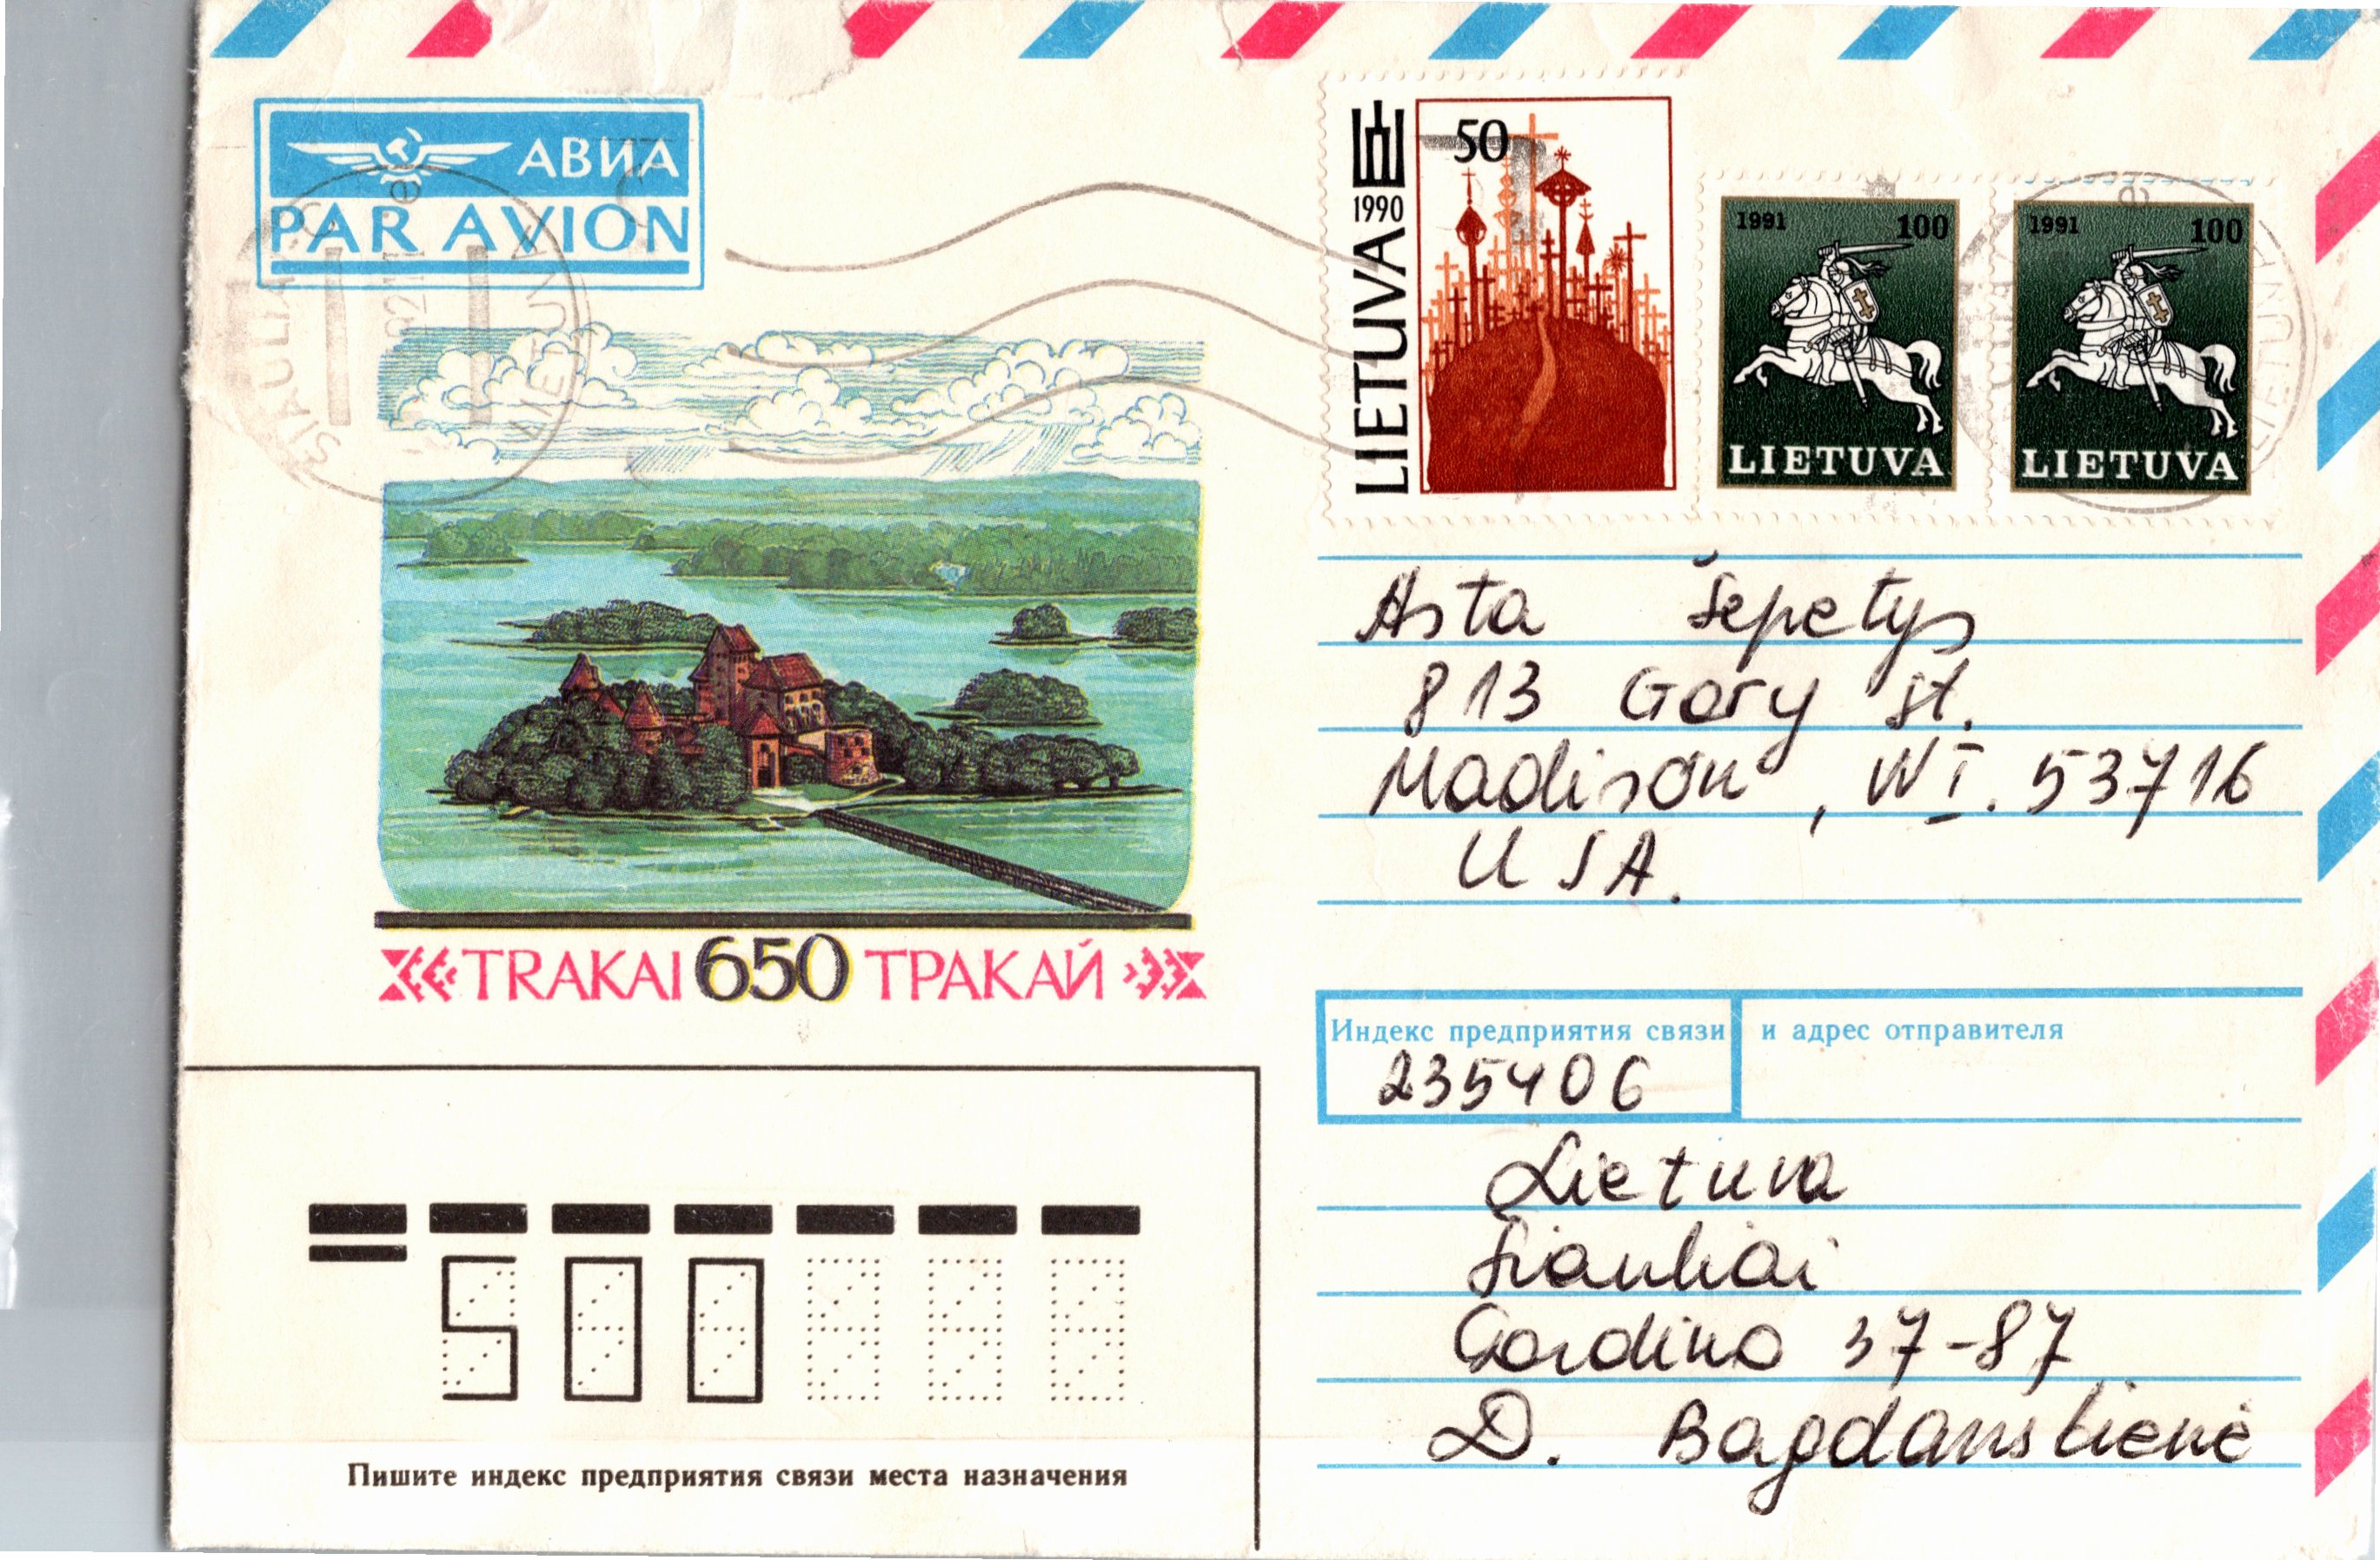 АВИА
PAR AVION
ŠIAULIAI
LIETUVA
50
1990
LIETUVA
1991 100
LIETUVA
1991 100
LIETUVA
Asta Šepetys
813 Gary st.
Madison, WI. 53716
USA.
TRAKAI 650 ТРАКАЙ
Индекс предприятия связи и адрес отправителя
235406
Lietuva
Šiauliai
Gardino 37-87
D. Bagdanskienė
500
Пишите индекс предприятия связи места назначения